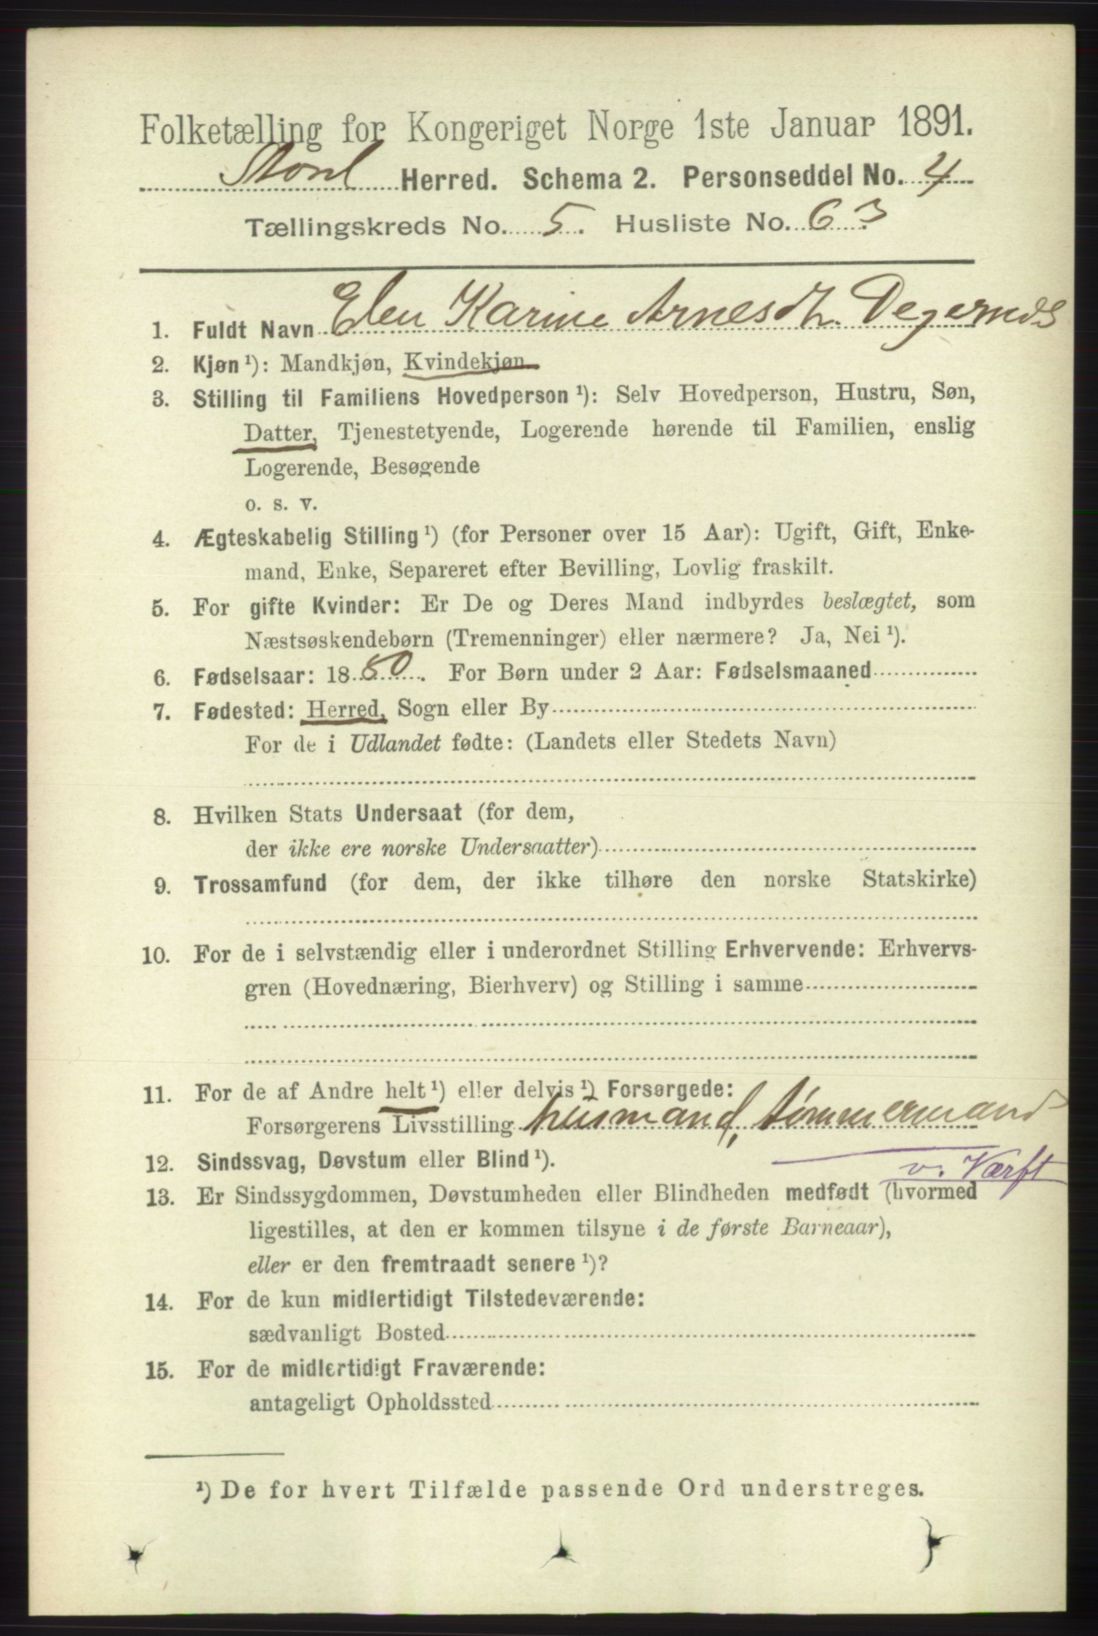 Folketælling for Kongeriget Norge 1ste Januar 1891.
Stord Herred. Schema 2. Personseddel No. 4
Tællingskreds No. 5. Husliste No. 63
1. Fuldt Navn Elen Karine Arnesdtr. Degernes
2. Kjøn ¹): Mandkjøn, Kvindekjøn
3. Stilling til Familiens Hovedperson ¹): Selv Hovedperson, Hustru, Søn,
Datter, Tjenestetyende, Logerende hørende til Familien, enslig
Logerende, Besøgende
o. s. v.
4. Ægteskabelig Stilling ¹) (for Personer over 15 Aar): Ugift, Gift, Enke-
mand, Enke, Separeret efter Bevilling, Lovlig fraskilt.
5. For gifte Kvinder: Er De og Deres Mand indbyrdes beslægtet, som
Næstsøskendebørn (Tremenninger) eller nærmere? Ja, Nei ¹).
6. Fødselsaar: 1880. For Børn under 2 Aar: Fødselsmaaned
7. Fødested: Herred, Sogn eller By
For de i Udlandet fødte: (Landets eller Stedets Navn)
8. Hvilken Stats Undersaat (for dem,
der ikke ere norske Undersaatter)
9. Trossamfund (for dem, der ikke tilhøre den norske Statskirke)
10. For de i selvstændig eller i underordnet Stilling Erhvervende: Erhvervs-
gren (Hovednæring, Bierhverv) og Stilling i samme
11. For de af Andre helt ¹) eller delvis ¹) Forsørgede:
Forsørgerens Livsstilling husmand, tømmermand
v. Værft
12. Sindssvag, Døvstum eller Blind ¹).
13. Er Sindssygdommen, Døvstumheden eller Blindheden medfødt (hvormed
ligestilles, at den er kommen tilsyne i de første Barneaar),
eller er den fremtraadt senere ¹)?
14. For de kun midlertidigt Tilstedeværende:
sædvanligt Bosted
15. For de midlertidigt Fraværende:
antageligt Opholdssted
¹) De for hvert Tilfælde passende Ord understreges.